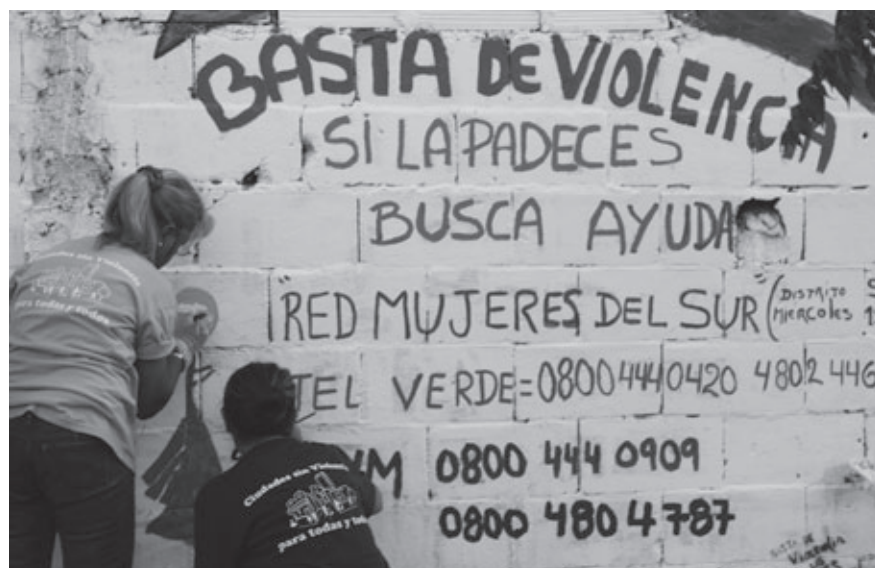 BASTA DE VIOLENCIA
SI LA PADECES
BUSCA AYUDA
"RED MUJERES DEL SUR" (DISTRITO
MIERCOLES
TEL VERDE=0800 444 0420 4802 446
M 0800 444 0909
0800 480 4787
Ciudades sin Violencia
para todas y todos
Ciudades sin Violencia
para todas y
BASTA DE